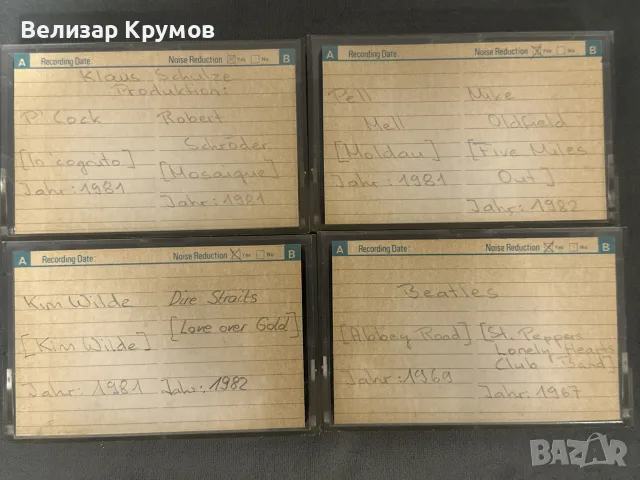 Велизар Крумов
A Recording Date: Noise Reduction Yes No B
Klaus Schulze
Produktion:
P'Cock
[In'cognito]
Jahr: 1981
Robert
Schröder
[Mosaique]
Jahr: 1981
A Recording Date: Noise Reduction Yes No B
Pell
Mell
[Moldau]
Jahr: 1981
Mike
Oldfield
[Five Miles
Out]
Jahr: 1982
A Recording Date: Noise Reduction Yes No B
Kim Wilde
[Kim Wilde]
Jahr: 1981
Dire Straits
[Love over Gold]
Jahr: 1982
A Recording Date: Noise Reduction Yes No B
Beatles
[Abbey Road]
Jahr: 1969
[St. Peppers
Lonely Hearts
Club Band]
Jahr: 1967
BAZAR